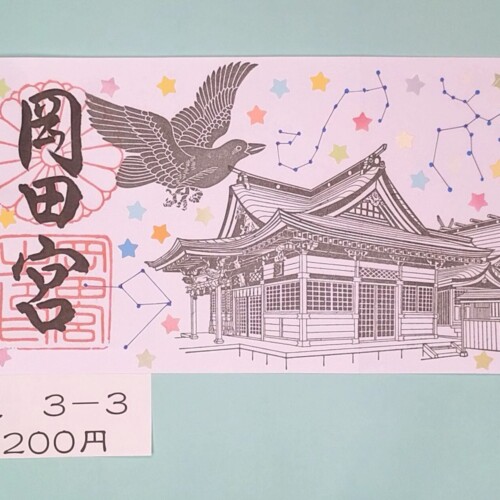 岡田宮
3－3
200円